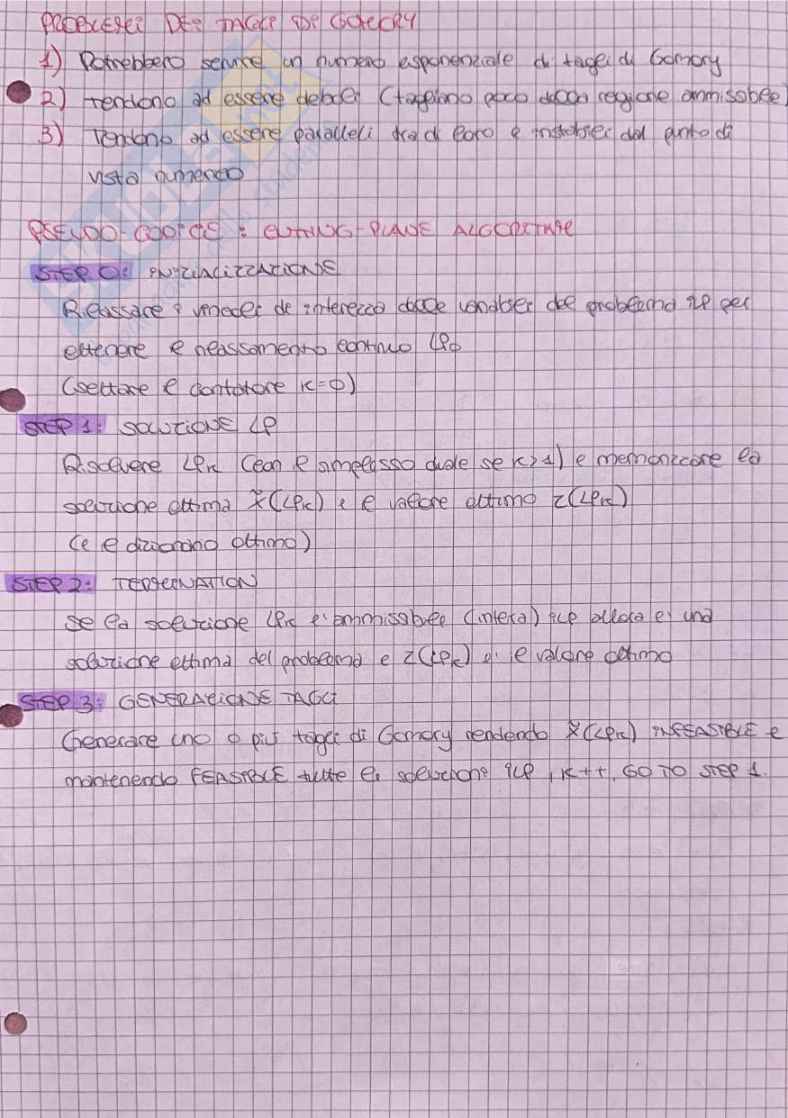 PROBLEMI DEI TAGLI DI GOMORY
1) Potrebbero servire un numero esponenziale di tagli di Gomory
2) tendono ad essere deboli (tagliano poco della regione ammissibile)
3) Tendono ad essere paralleli tra di loro e instabili dal punto di
vista numerico
PSEUDO-CODICE: CUTTING-PLANE ALGORITHM
STEP 0: INIZIALIZZAZIONE
Rilassare i vincoli di interezza dalle variabili del problema ILP per
ottenere il rilassamento continuo LP0
(settare il contatore K=0)
STEP 1: SOLUZIONE LP
Risolvere LPK (con il simplesso duale se K≥1) e memorizzare la
soluzione ottima x̃(LPK) e il valore ottimo z(LPK)
(e il dizionario ottimo)
STEP 2: TERMINATION
se la soluzione LPK è ammissibile (intera) ILP allora è una
soluzione ottima del problema e z(LPK) è il valore ottimo
STEP 3: GENERAZIONE TAGLI
Generare uno o più tagli di Gomory rendendo x̃(LPK) INFEASIBLE e
mantenendo FEASIBLE tutte le soluzione ILP, K++, GO TO STEP 1.